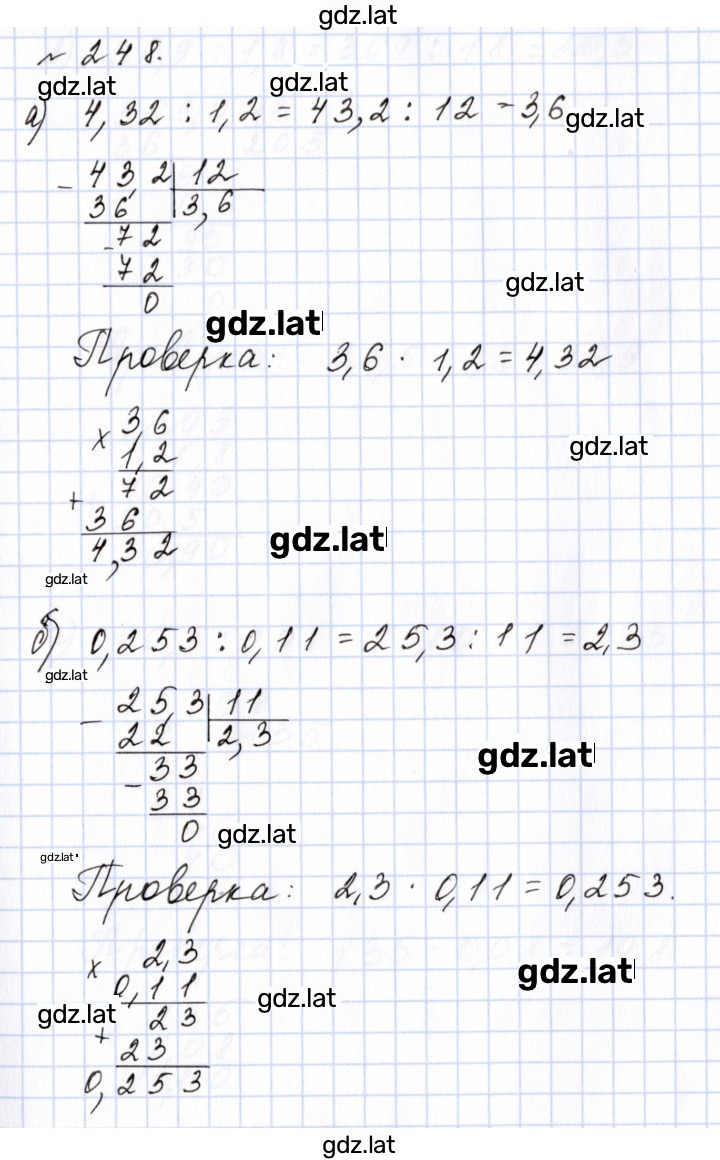 gdz.lat
№ 248.
gdz.lat gdz.lat
а) 4,32 : 1,2 = 43,2 : 12 = 3,6
gdz.lat
- 43,2 | 12
36 | 3,6
- 72
72
gdz.lat
0
gdz.lat
Проверка: 3,6 · 1,2 = 4,32
× 3,6
1,2
gdz.lat
72
+ 36
4,32
gdz.lat
gdz.lat
б) 0,253 : 0,11 = 25,3 : 11 = 2,3
gdz.lat
- 25,3 | 11
22 | 2,3
gdz.lat
- 33
33
0
gdz.lat
gdz.lat
Проверка: 2,3 · 0,11 = 0,253.
× 2,3
gdz.lat
0,11
gdz.lat
gdz.lat
23
+ 23
0,253
gdz.lat